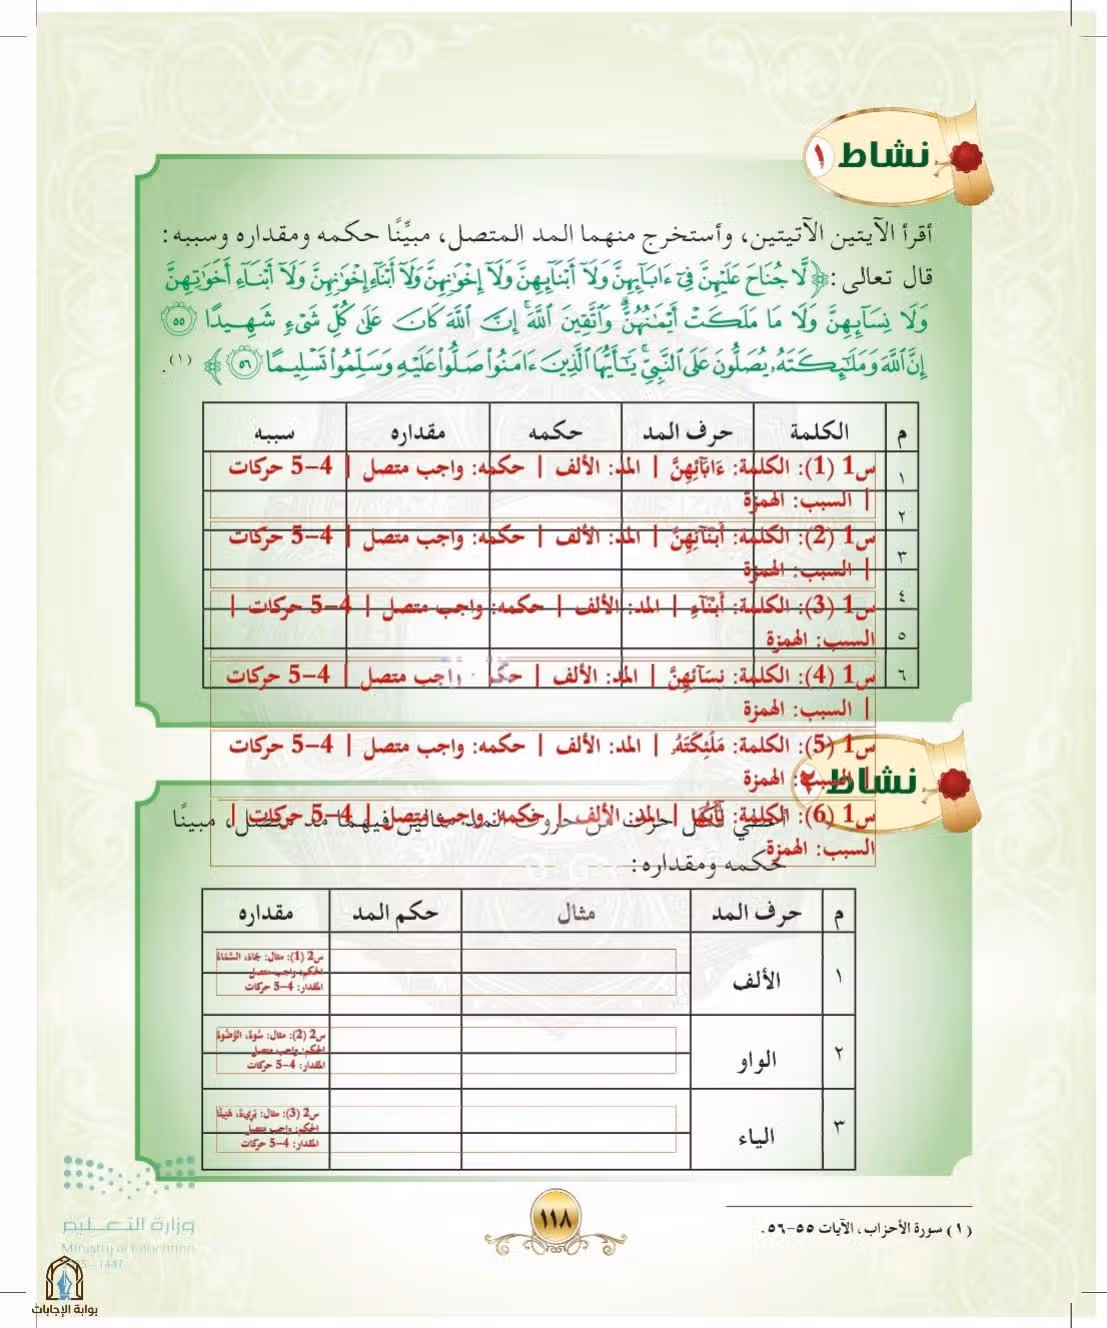 نشاط ١
أقرأ الآيتين الآتيتين، وأستخرج منهما المد المتصل، مبيِّنًا حكمه ومقداره وسببه:
قال تعالى: ﴿لَّا جُنَاحَ عَلَيْهِنَّ فِيٓ ءَابَآئِهِنَّ وَلَآ أَبْنَآئِهِنَّ وَلَآ إِخْوَٰنِهِنَّ وَلَآ أَبْنَآءِ إِخْوَٰنِهِنَّ وَلَآ أَبْنَآءِ أَخَوَٰتِهِنَّ
وَلَا نِسَآئِهِنَّ وَلَا مَا مَلَكَتْ أَيْمَٰنُهُنَّۗ وَٱتَّقِينَ ٱللَّهَۚ إِنَّ ٱللَّهَ كَانَ عَلَىٰ كُلِّ شَىْءٍ شَهِيدًا ۝٥٥
إِنَّ ٱللَّهَ وَمَلَٰٓئِكَتَهُۥ يُصَلُّونَ عَلَى ٱلنَّبِيِّۚ يَٰٓأَيُّهَا ٱلَّذِينَ ءَامَنُوا۟ صَلُّوا۟ عَلَيْهِ وَسَلِّمُوا۟ تَسْلِيمًا ۝٥٦﴾ (١).
م الكلمة حرف المد حكمه مقداره سببه
١
٢
٣
٤
٥
٦
س1 (1): الكلمة: ءَابَآئِهِنَّ | المد: الألف | حكمه: واجب متصل | 4–5 حركات
| السبب: الهمزة
س1 (2): الكلمة: أَبْنَآئِهِنَّ | المد: الألف | حكمه: واجب متصل | 4–5 حركات
| السبب: الهمزة
س1 (3): الكلمة: أَبْنَآءِ | المد: الألف | حكمه: واجب متصل | 4–5 حركات |
السبب: الهمزة
س1 (4): الكلمة: نِسَآئِهِنَّ | المد: الألف | حكمه: واجب متصل | 4–5 حركات
| السبب: الهمزة
س1 (5): الكلمة: مَلَٰئِكَتَهُۥ | المد: الألف | حكمه: واجب متصل | 4–5 حركات |
السبب: الهمزة
نشاط ٢
س1 (6): الكلمة: يَٰٓأَيُّهَا | المد: الألف | حكمه: واجب متصل | 4–5 حركات |
السبب: الهمزة
لكل حرف من حروف المد مثالين فيهما مد متصل، مبينًا
حكمه ومقداره:
م حرف المد مثال حكم المد مقداره
١ الألف
س2 (1): مثال: جَاءَ، السَّمَاءَ
الحكم: واجب متصل
المقدار: 4–5 حركات
٢ الواو
س2 (2): مثال: سُوءَ، الوُضُوءَ
الحكم: واجب متصل
المقدار: 4–5 حركات
٣ الياء
س2 (3): مثال: بَرِيءَ، هَنِيئًا
الحكم: واجب متصل
المقدار: 4–5 حركات
(١) سورة الأحزاب، الآيات ٥٥-٥٦.
١١٨
وزارة التعليم
Ministry of Education
1447
بوابة الإجابات